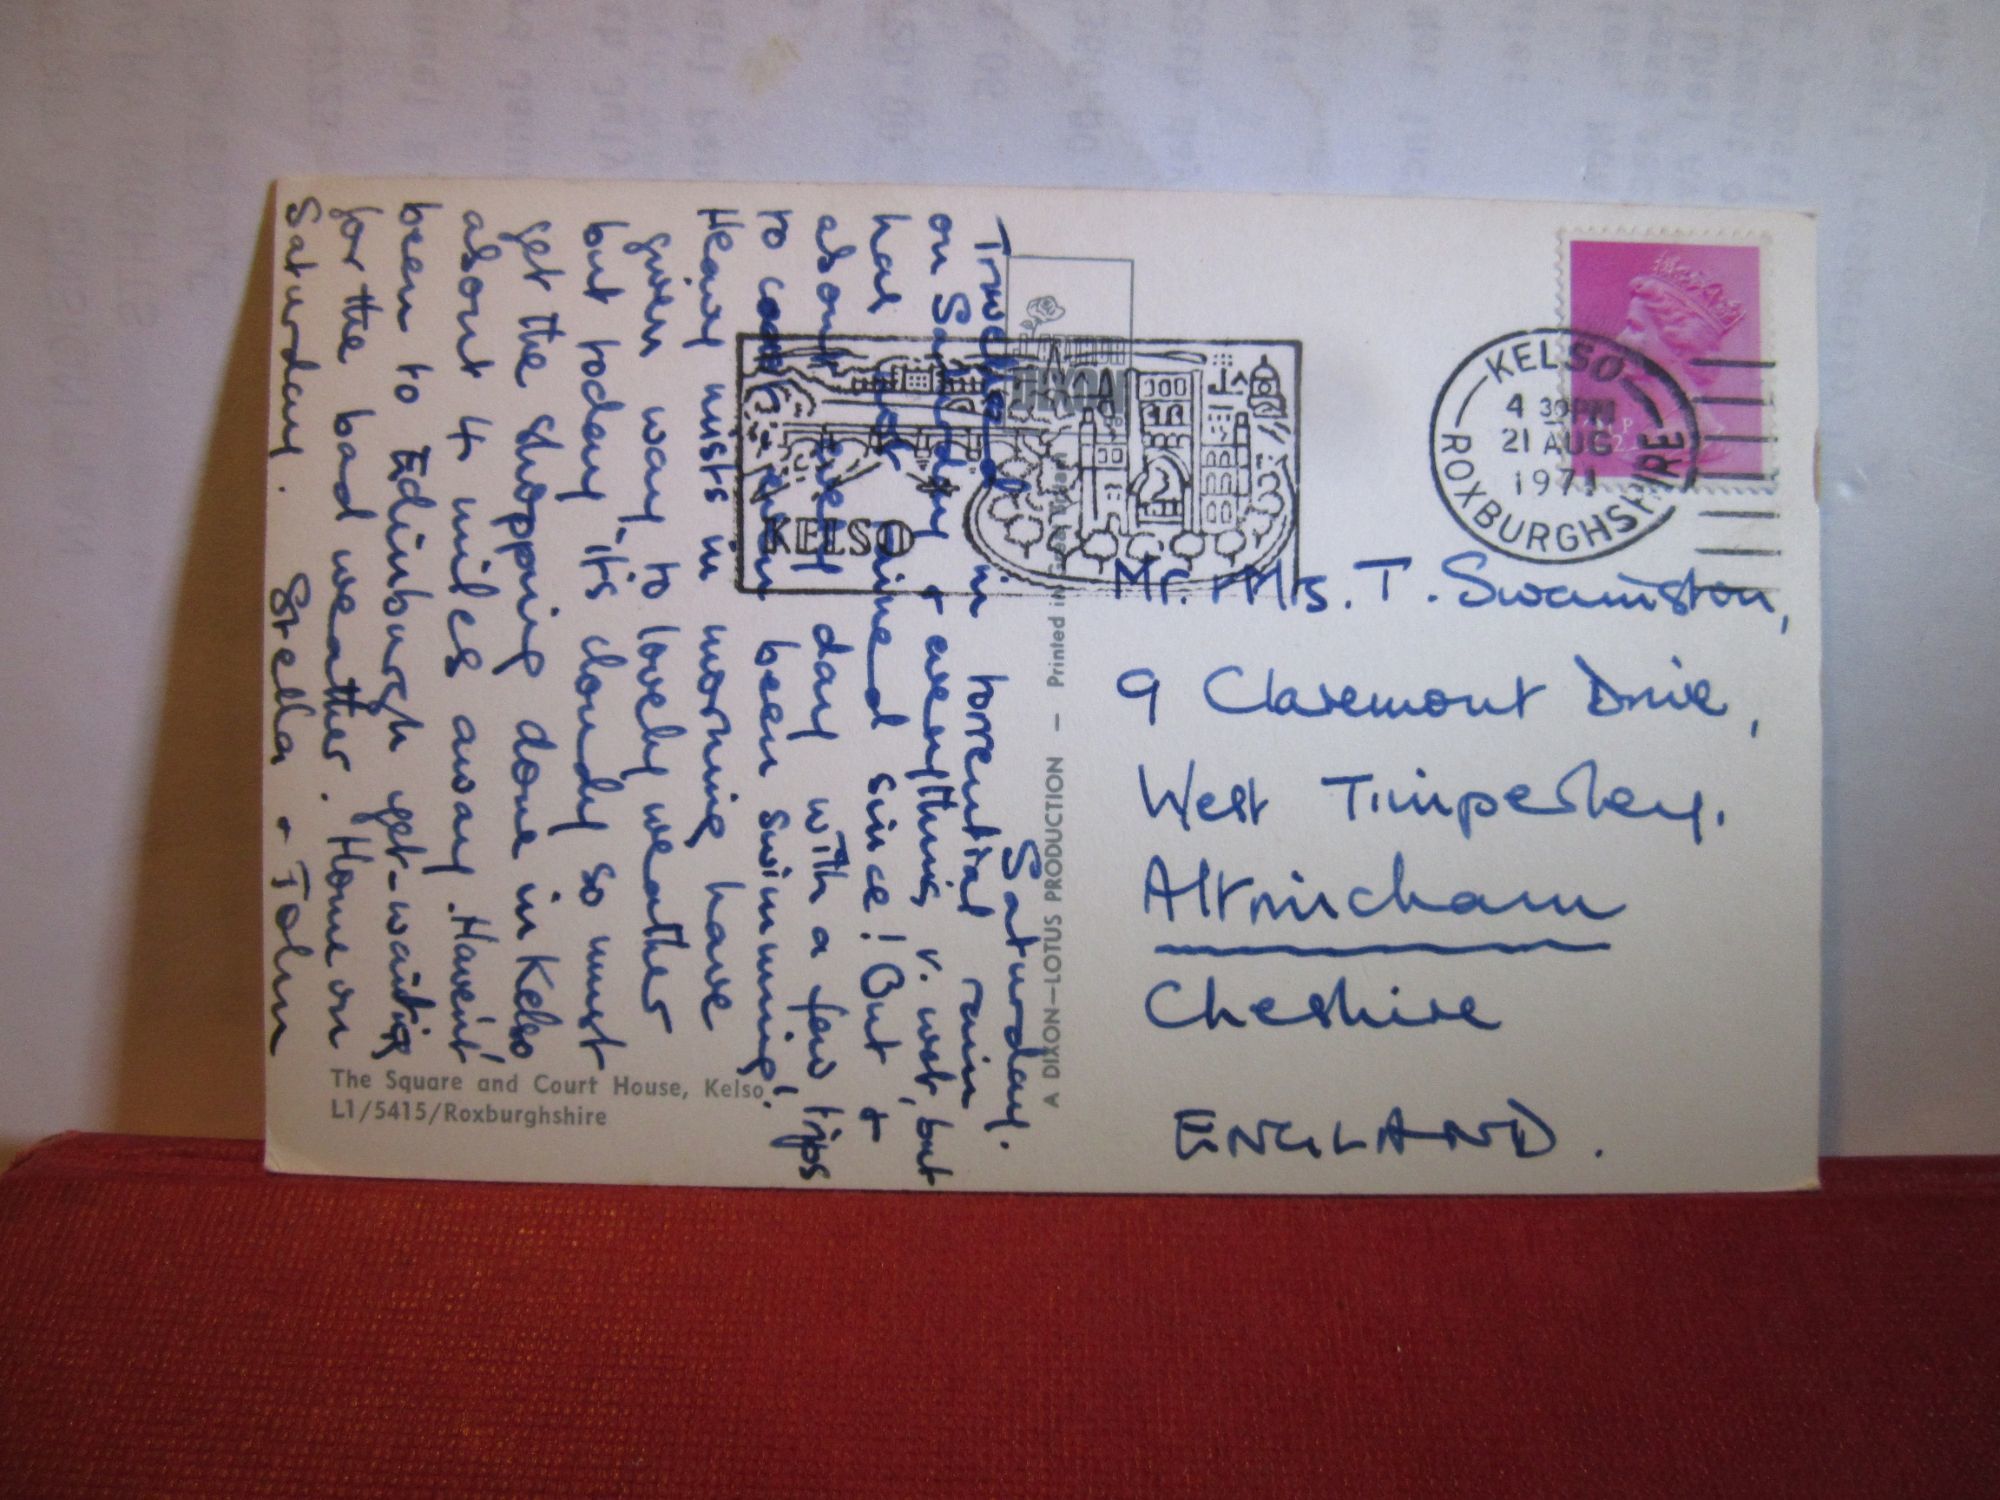 Saturday.
Travelled in torrential rain
on Saturday & everything v. wet, but
has not rained since! But &
about every day with a few trips
to coast even been swimming!
Heavy mists in morning have
given way to lovely weather
but today it's cloudy so must
get the shopping done in Kelso
about 4 miles away. Haven't
been to Edinburgh yet-waiting
for the bad weather. Home on
Saturday. Stella & John
The Square and Court House, Kelso.
L1/5415/Roxburghshire
A DIXON—LOTUS PRODUCTION — Printed in
DIXON
KELSO
KELSO
4 30PM
21 AUG
1971
ROXBURGHSHIRE
Mr. & Mrs. T. Swanniston,
9 Claremont Drive,
West Timperley.
Altrincham
Cheshire
ENGLAND.